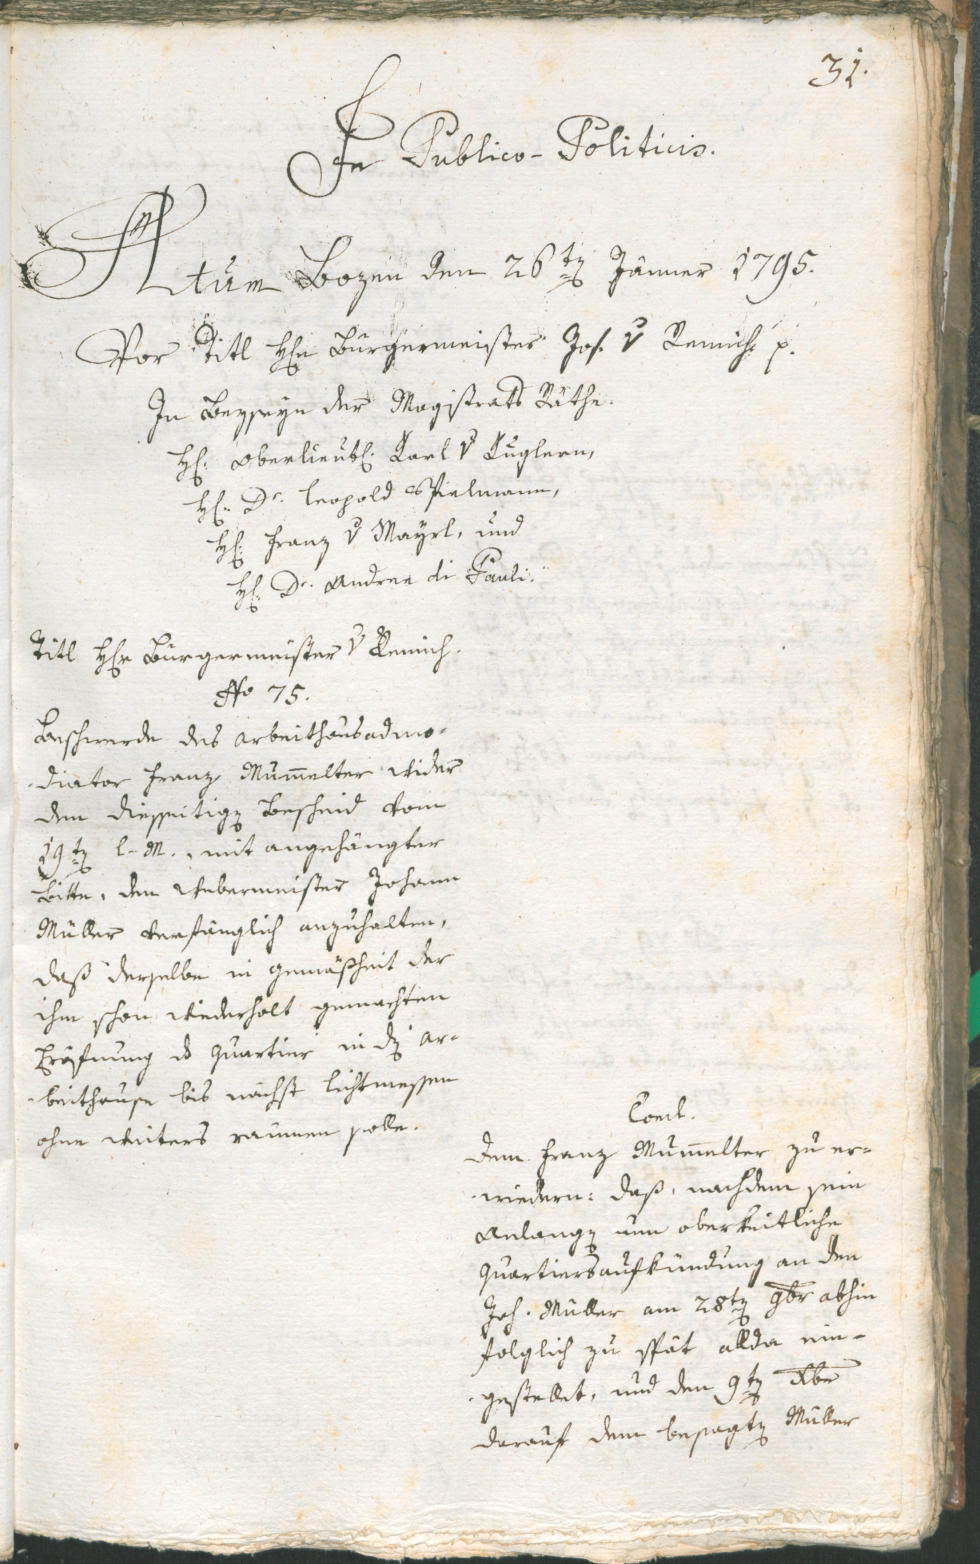 31.
In Publico-Politicis.
Actum Bozen den 26ten Jänner 1795.
Vor Titl Hn Bürgermeister Jos. v Remich p.
In Beyseyn der Magistrats Räthe.
H: Oberlieut: Karl v Kuglern,
H: Dr. Leopold Spielmann,
H: Franz v Mayrl, und
H: Dr. Andree di Pauli.
Titl Hn Bürgermeister v Remich.
No 75.
Beschwerde des Arbeithausadmo-
diator Franz Mumelter wider
den diesseitigen Bescheid vom
19ten l. M., mit angehängter
Bitte, den Webermeister Johann
Müller verfänglich anzuhalten,
daß derselbe in Gemäßheit der
ihm schon wiederholt gemachten
Eröfnung das Quartier in dem Ar-
beithause bis nächst Lichtmessen
ohne weiters raumen solle.
Concl.
Dem Franz Mumelter zu er-
wiedern: daß, nachdem sein
Anlangen um oberkeitliche
Quartiersaufkündung an den
Joh. Müller am 28ten 9br abhin
folglich zu spät allda ein-
gestellet, und den 9ten Xber
darauf dem besagten Müller